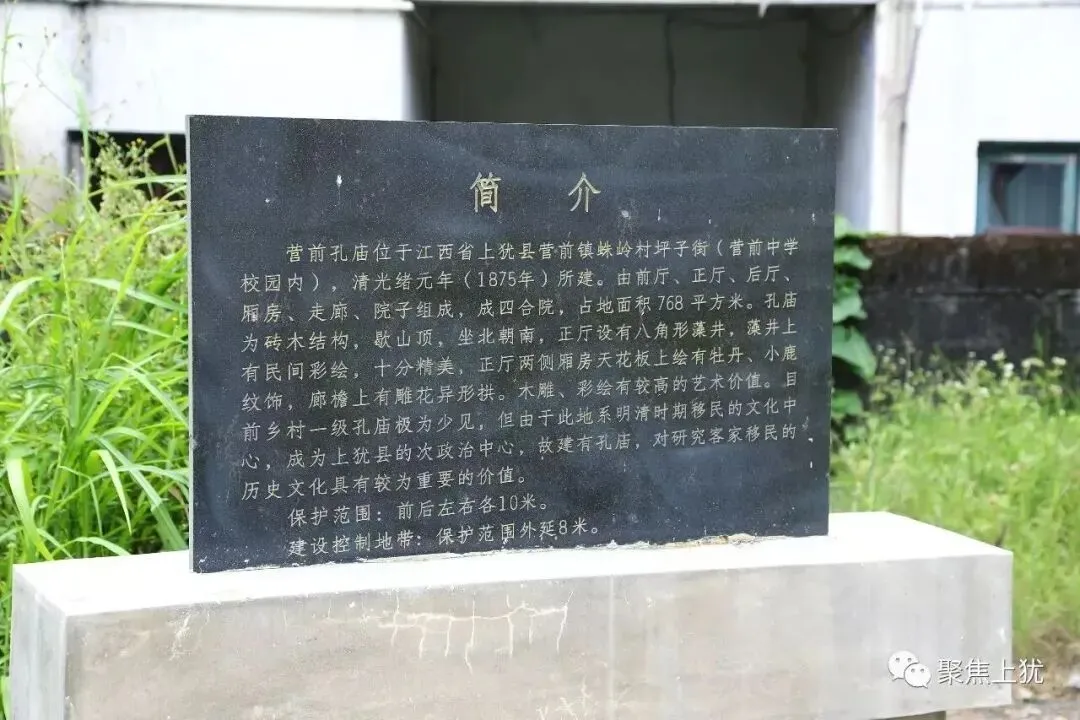 简 介
营前孔庙位于江西省上犹县营前镇蛛岭村坪子街（营前中学
校园内），清光绪元年（1875年）所建。由前厅、正厅、后厅、
厢房、走廊、院子组成，成四合院，占地面积768平方米。孔庙
为砖木结构，歇山顶，坐北朝南，正厅设有八角形藻井，藻井上
有民间彩绘，十分精美，正厅两侧厢房天花板上绘有牡丹、小鹿
纹饰，廊檐上有雕花异形拱。木雕、彩绘有较高的艺术价值。目
前乡村一级孔庙极为少见，但由于此地系明清时期移民的文化中
心，成为上犹县的次政治中心，故建有孔庙，对研究客家移民的
历史文化具有较为重要的价值。
保护范围：前后左右各10米。
建设控制地带：保护范围外延8米。
聚焦上犹